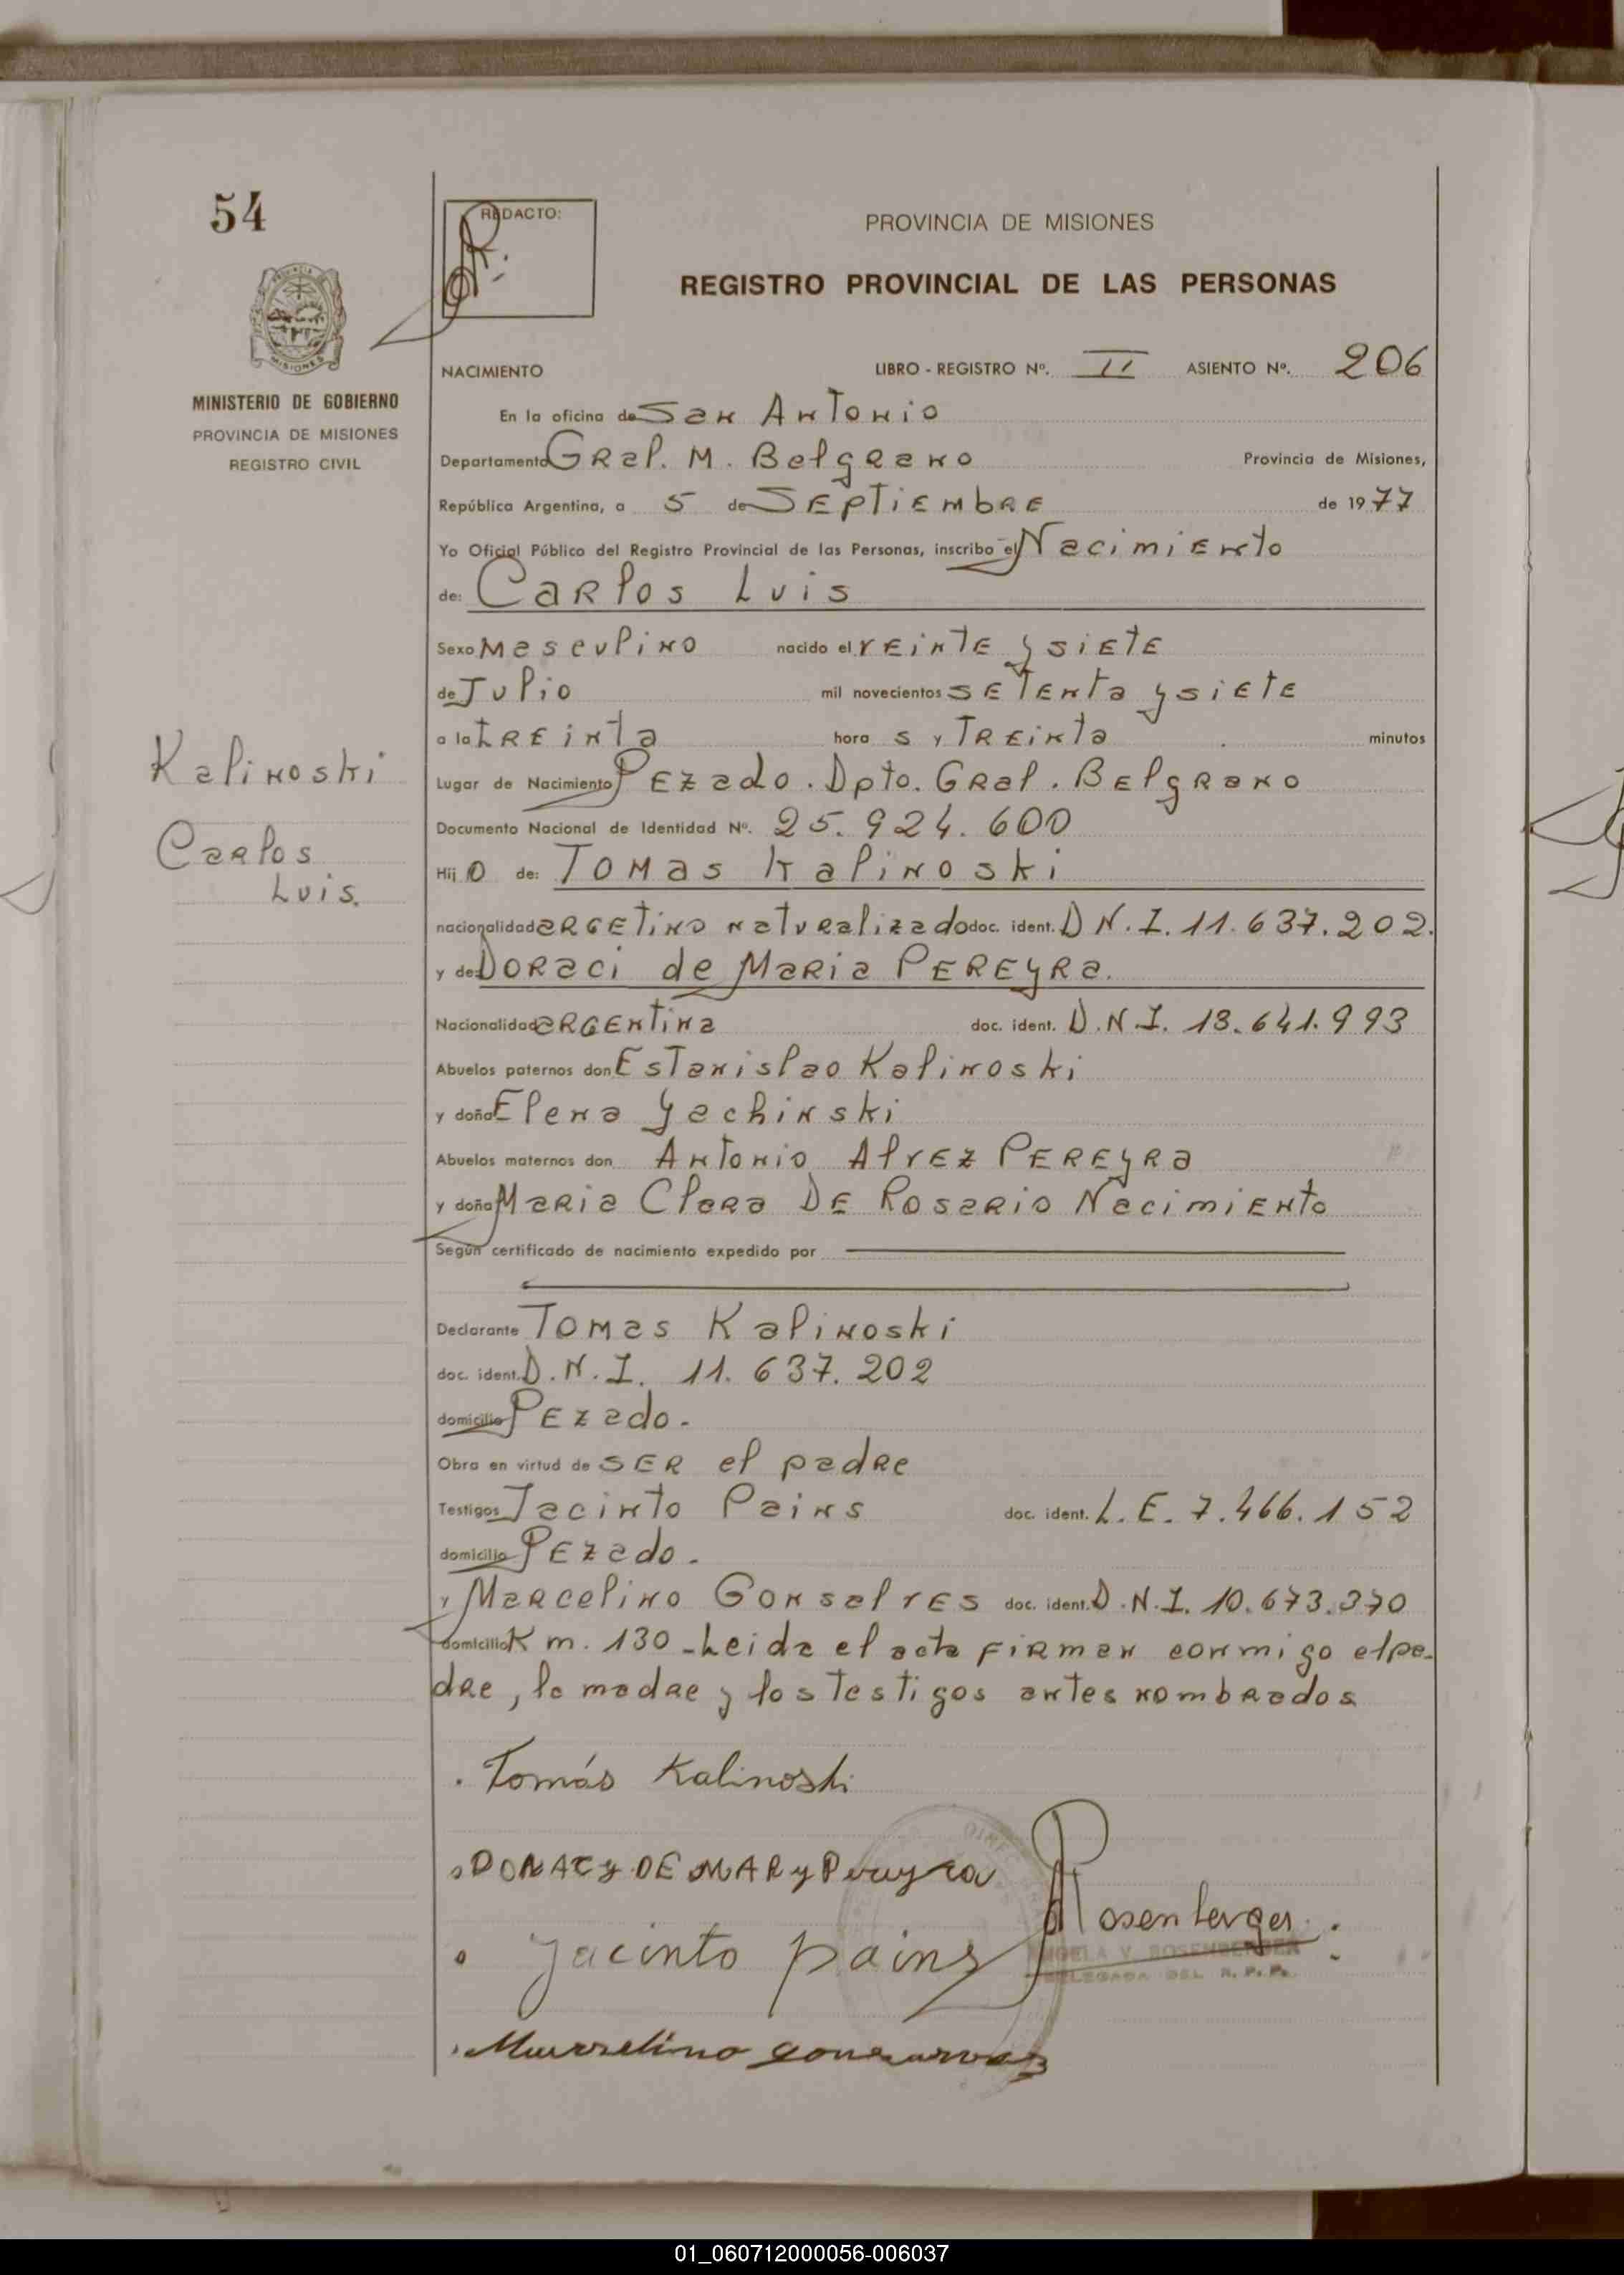 54
REDACTO:
PROVINCIA DE MISIONES
REGISTRO PROVINCIAL DE LAS PERSONAS
MISIONES
MINISTERIO DE GOBIERNO
PROVINCIA DE MISIONES
REGISTRO CIVIL
NACIMIENTO LIBRO - REGISTRO Nº. II ASIENTO Nº. 206
En la oficina de San Antonio
Departamento Gral. M. Belgrano Provincia de Misiones,
República Argentina, a 5 de Septiembre de 1977
Yo Oficial Público del Registro Provincial de las Personas, inscribo el Nacimiento
de: Carlos Luis
Sexo Masculino nacido el veinte y siete
de Julio mil novecientos setenta y siete
a la treinta hora s y treinta minutos
Kalinoski
Lugar de Nacimiento Pezado. Dpto. Gral. Belgrano
Documento Nacional de Identidad Nº. 25.924.600
Carlos
Luis.
Hijo de: Tomas Kalinoski
nacionalidad argetino naturalizado doc. ident. D N.I. 11.637.202.
y de: Doraci de Maria Pereyra.
Nacionalidad argentina doc. ident. D.N.I. 13.641.993
Abuelos paternos don Estanislao Kalinoski
y doña Elena Yachinski
Abuelos maternos don Antonio Alvez Pereyra
y doña Maria Clara De Rosario Nacimiento
Según certificado de nacimiento expedido por
Declarante Tomas Kalinoski
doc. ident. D.N.I. 11.637.202
domicilio Pezado.
Obra en virtud de ser el padre
Testigos Jacinto Pains doc. ident. L.E. 7.466.152
domicilio Pezado.
y Marcelino Gonsalves doc. ident. D.N.I. 10.673.370
domicilio K m. 130 - Leida el acta firman conmigo el pa-
dre, la madre y los testigos antes nombrados
Tomás Kalinoski
DORACY DE MARY Pereyra
Rosenberger
Jacinto pains
ANGELA V. ROSENBERGER
DELEGADA DEL R. P. P.
Marcelino
01_060712000056-006037